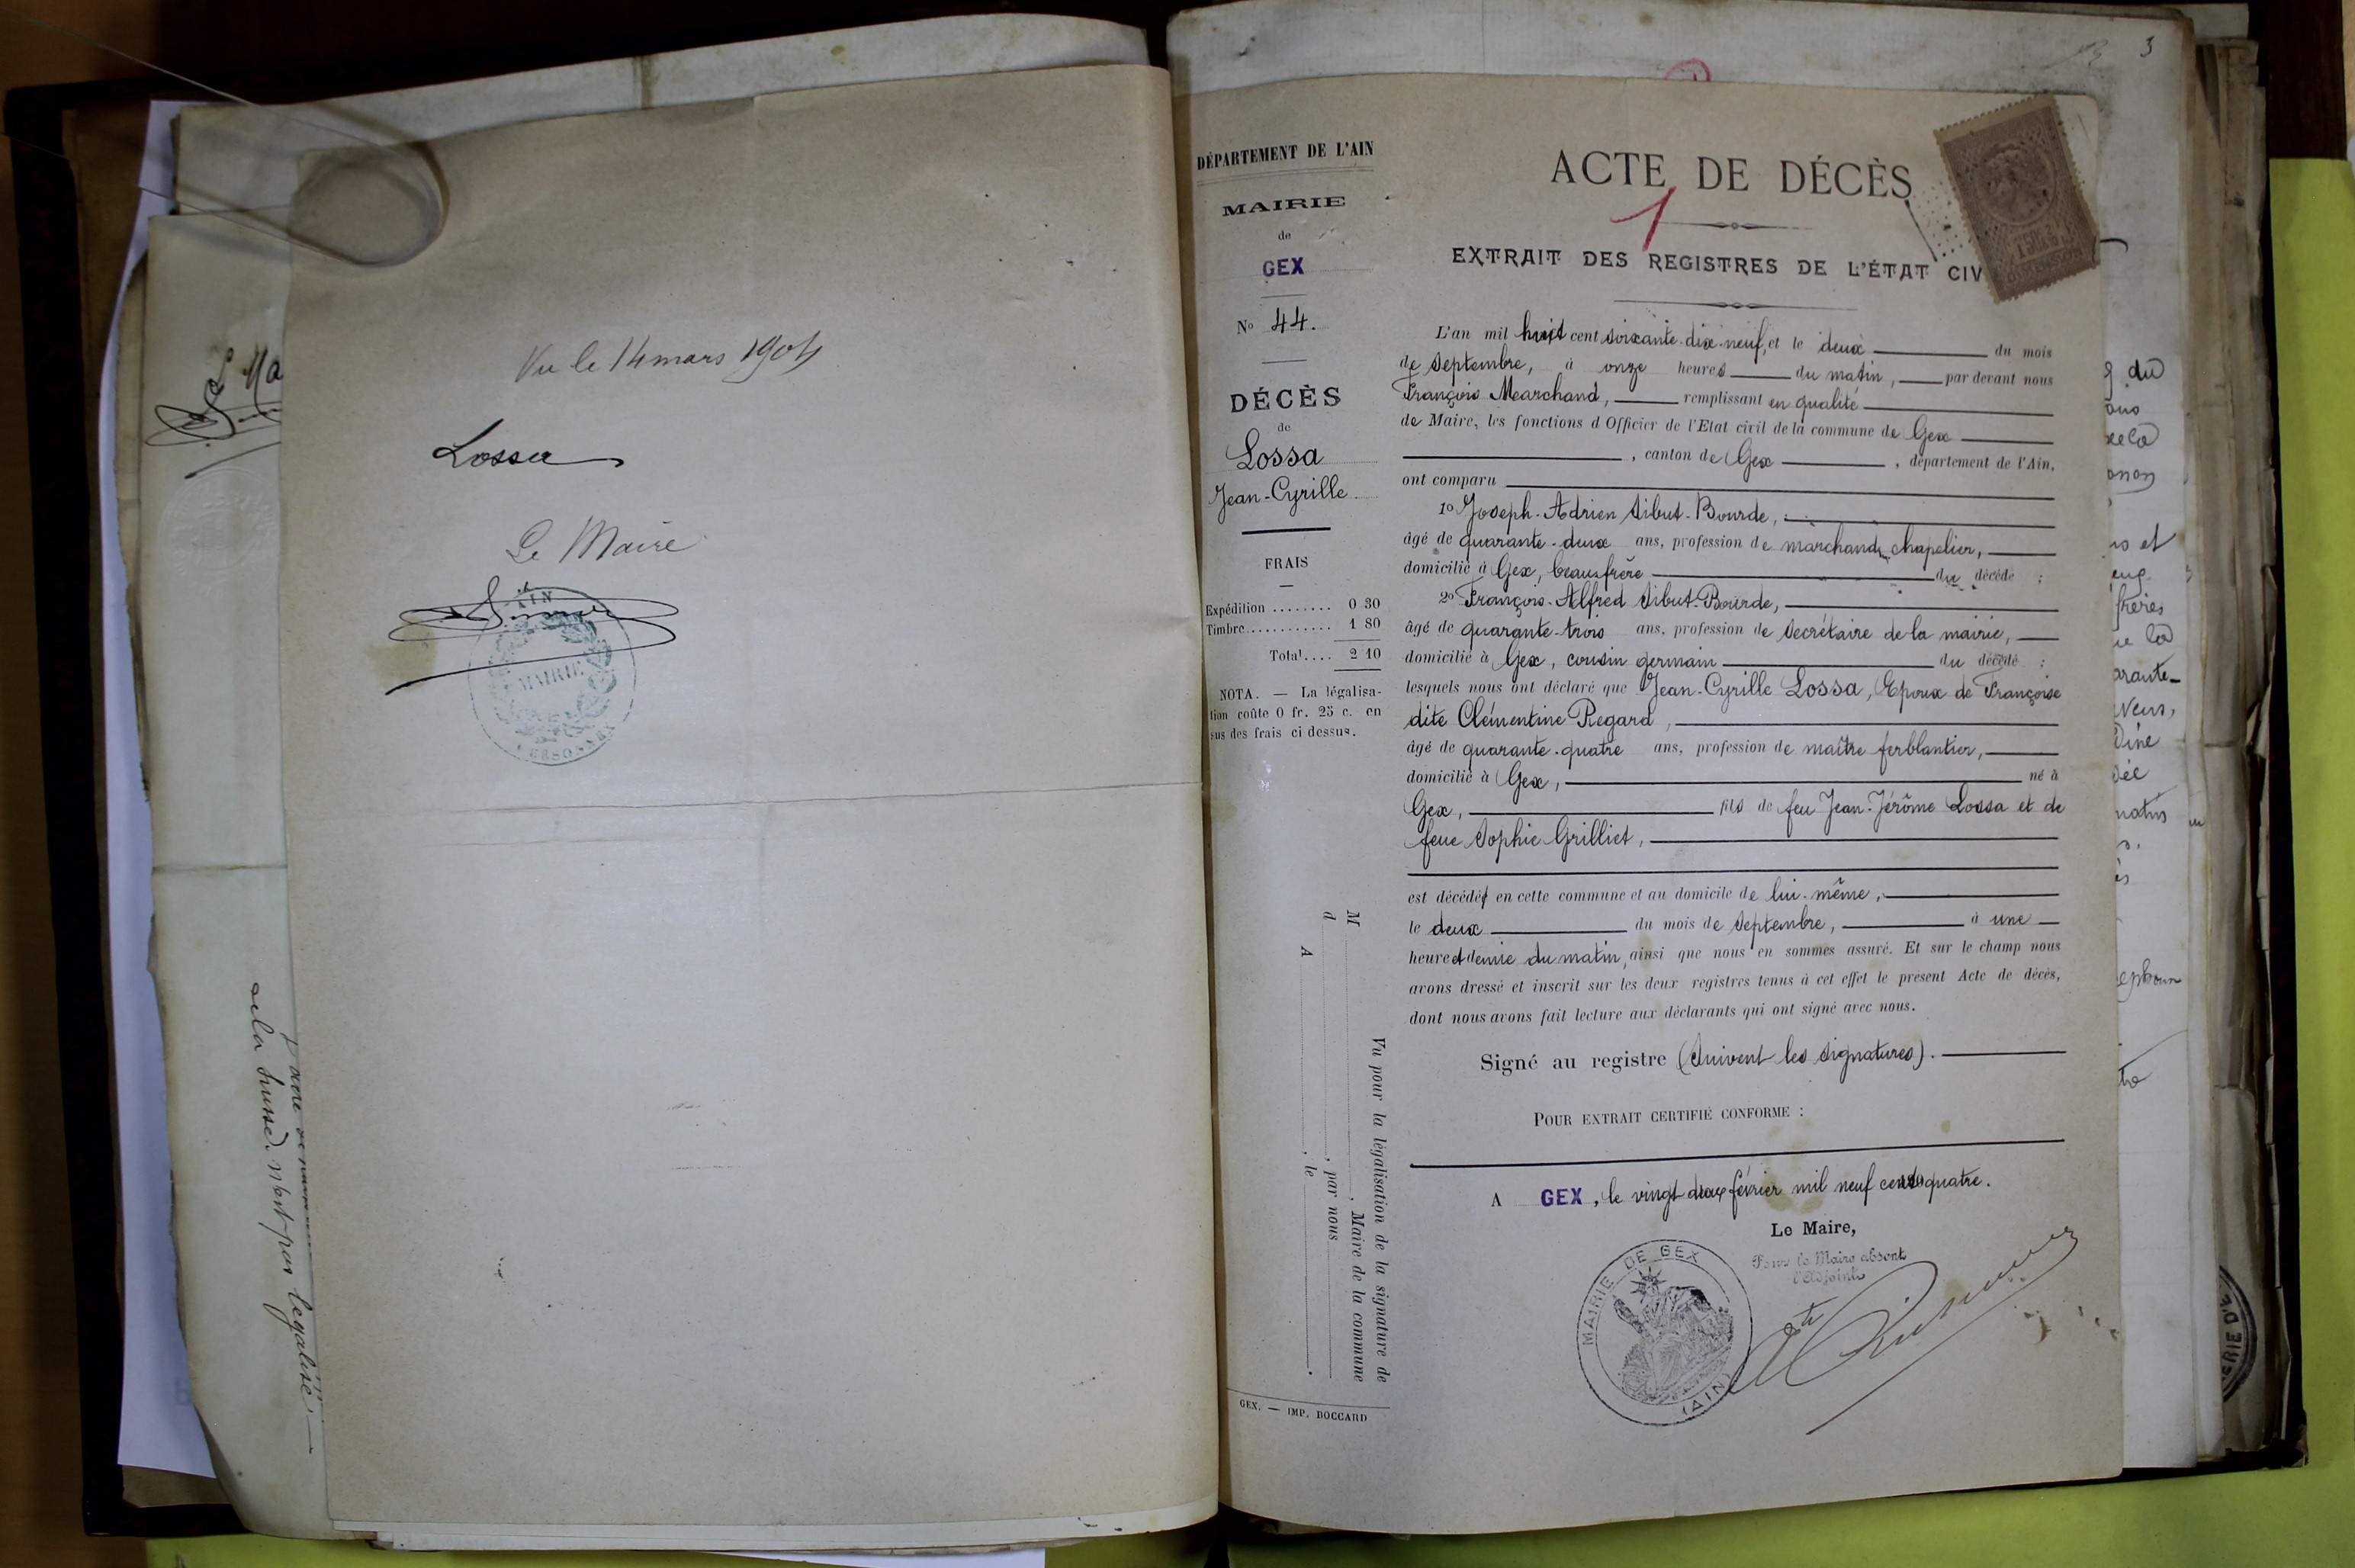 Vu le 14 mars 1904
Lossa
Le Maire
AIN
MAIRIE
& Ma
à la suisse n'est pas légalisé
3
DÉPARTEMENT DE L'AIN
MAIRIE
de
GEX
No 44.
DÉCÈS
de
Lossa
Jean-Cyrille
FRAIS
Expédition ........ 0 30
Timbre............ 1 80
Total.... 2 10
NOTA. — La légalisa-
tion coûte 0 fr. 25 c. en
sus des frais ci dessus.
Vu pour la légalisation de la signature de
M , Maire de la commune
d , par nous
A , le .
GEX. — IMP. BOCCARD
ACTE DE DÉCÈS
1
EXTRAIT DES REGISTRES DE L'ÉTAT CIV
L'an mil huit cent soixante-dix-neuf, et le deux du mois
de Septembre, à onze heures du matin, par devant nous
François Marchand, remplissant en qualité
de Maire, les fonctions d'Officier de l'Etat civil de la commune de Gex
, canton de Gex , département de l'Ain,
ont comparu
1o Joseph-Adrien Sibut-Bourde,
âgé de quarante-deux ans, profession de marchand chapelier,
domicilié à Gex, beau-frère du décédé ;
2o François-Alfred Sibut-Bourde,
âgé de quarante-trois ans, profession de Secrétaire de la mairie,
domicilié à Gex, cousin germain du décédé ;
lesquels nous ont déclaré que Jean-Cyrille Lossa, Epoux de Françoise
dite Clémentine Regard,
âgé de quarante-quatre ans, profession de maître ferblantier,
domicilié à Gex, né à
Gex, fils de feu Jean-Jérôme Lossa et de
feue Sophie Grilliet,
est décédé en cette commune et au domicile de lui-même,
le deux du mois de Septembre, à une
heure et demie du matin, ainsi que nous en sommes assuré. Et sur le champ nous
avons dressé et inscrit sur les deux registres tenus à cet effet le présent Acte de décès,
dont nous avons fait lecture aux déclarants qui ont signé avec nous.
Signé au registre (Suivent les signatures).
POUR EXTRAIT CERTIFIÉ CONFORME :
A GEX, le vingt deux février mil neuf cent quatre.
Le Maire,
Pour le Maire absent
l'Adjoint
MAIRIE DE GEX
(AIN)